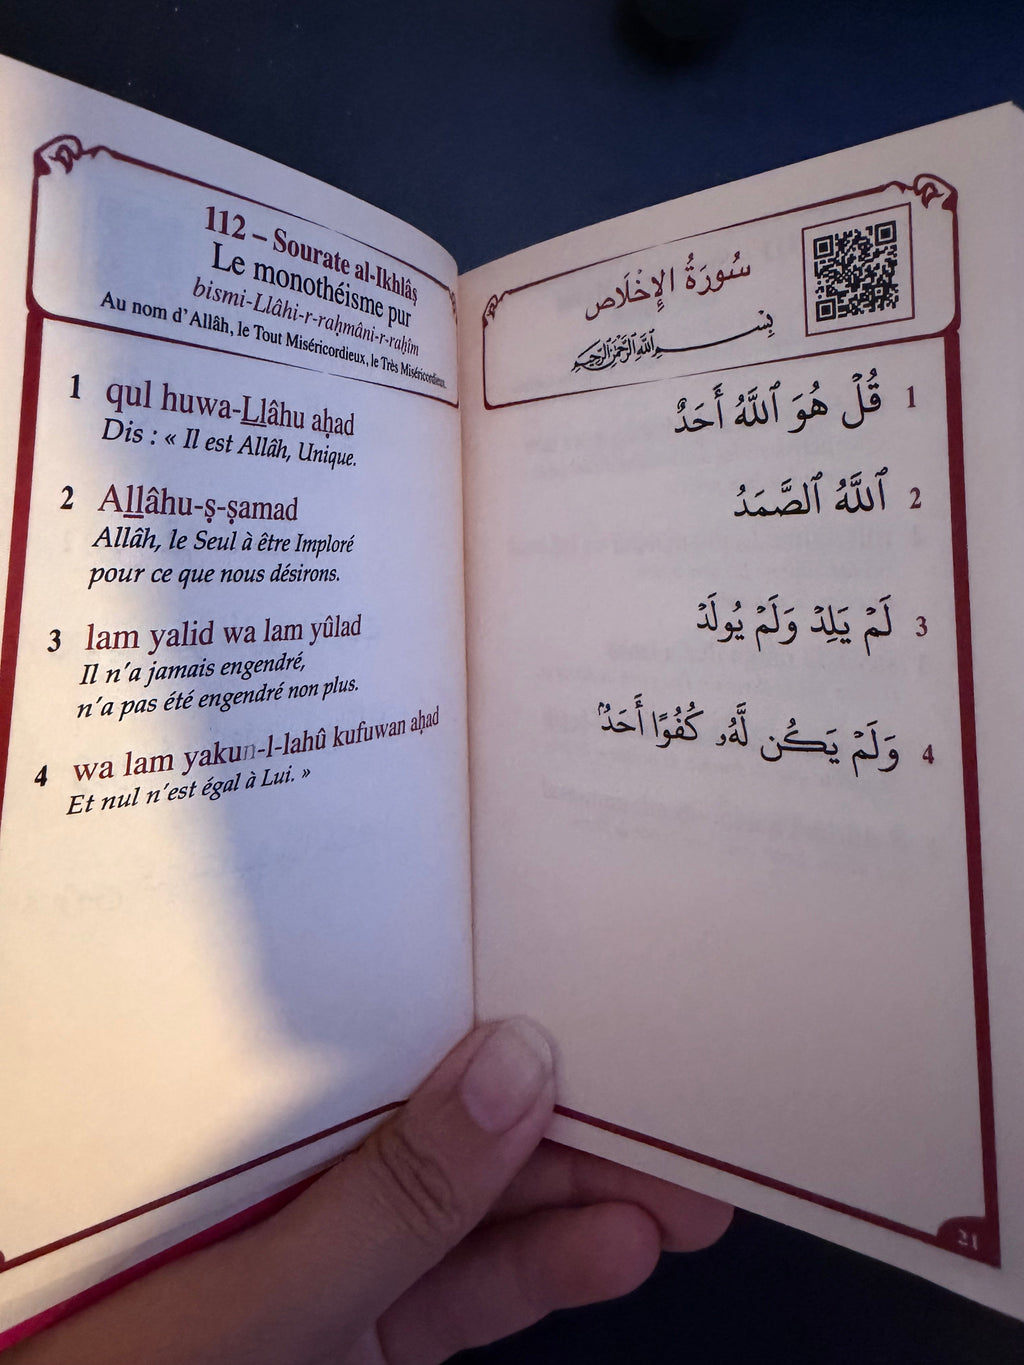 112 – Sourate al-Ikhlâṣ
Le monothéisme pur
bismi-Llâhi-r-raḥmâni-r-raḥîm
Au nom d'Allâh, le Tout Miséricordieux, le Très Miséricordieux.
1 qul huwa-Llâhu aḥad
Dis : « Il est Allâh, Unique.
2 Allâhu-ṣ-ṣamad
Allâh, le Seul à être Imploré
pour ce que nous désirons.
3 lam yalid wa lam yûlad
Il n'a jamais engendré,
n'a pas été engendré non plus.
4 wa lam yakun-l-lahû kufuwan aḥad
Et nul n'est égal à Lui. »
سُورَةُ الإِخْلَاص
بِسْمِ ٱللَّهِ ٱلرَّحْمَٰنِ ٱلرَّحِيمِ
1 قُلْ هُوَ ٱللَّهُ أَحَدٌ
2 ٱللَّهُ ٱلصَّمَدُ
3 لَمْ يَلِدْ وَلَمْ يُولَدْ
4 وَلَمْ يَكُن لَّهُۥ كُفُوًا أَحَدٌۢ
21